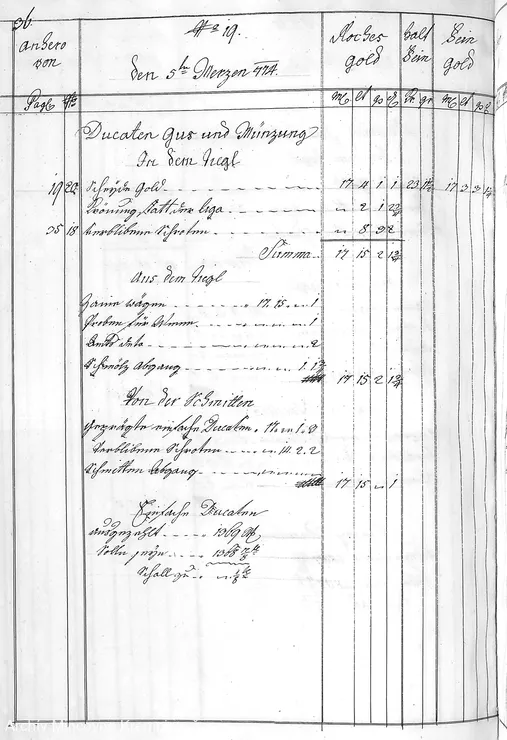 36.
anhero von
No 19.
den 5ten Merzen 774.
Roches gold
halt Fein
Fein gold
Pagl No
M lt q d
Kr. gr.
M lt q d
Ducaten Gus und Münzung
In dem Tiegl
19 20 Scheyde Gold 17. 4 1 1 23 17 3 3
Krönung statt der Liga " 2 1
35 18 Verblibene Schroten " 8
Summa 17 15 2
Aus dem Tiegl
Zaine wägen 17. 15. " 1
Proben für " " " 1
deto " " " 2
Schmölz Abgang " " 1.
17 15 2
Von der Schmitten
Geprägte einfache Ducaten 17. " 1. 3
Verblibene Schroten " 14. 2. 2
Schmitten Abgang
17 15 " 1
Einfache Ducaten
ausgezahlt 1369
Solte seyn 1368